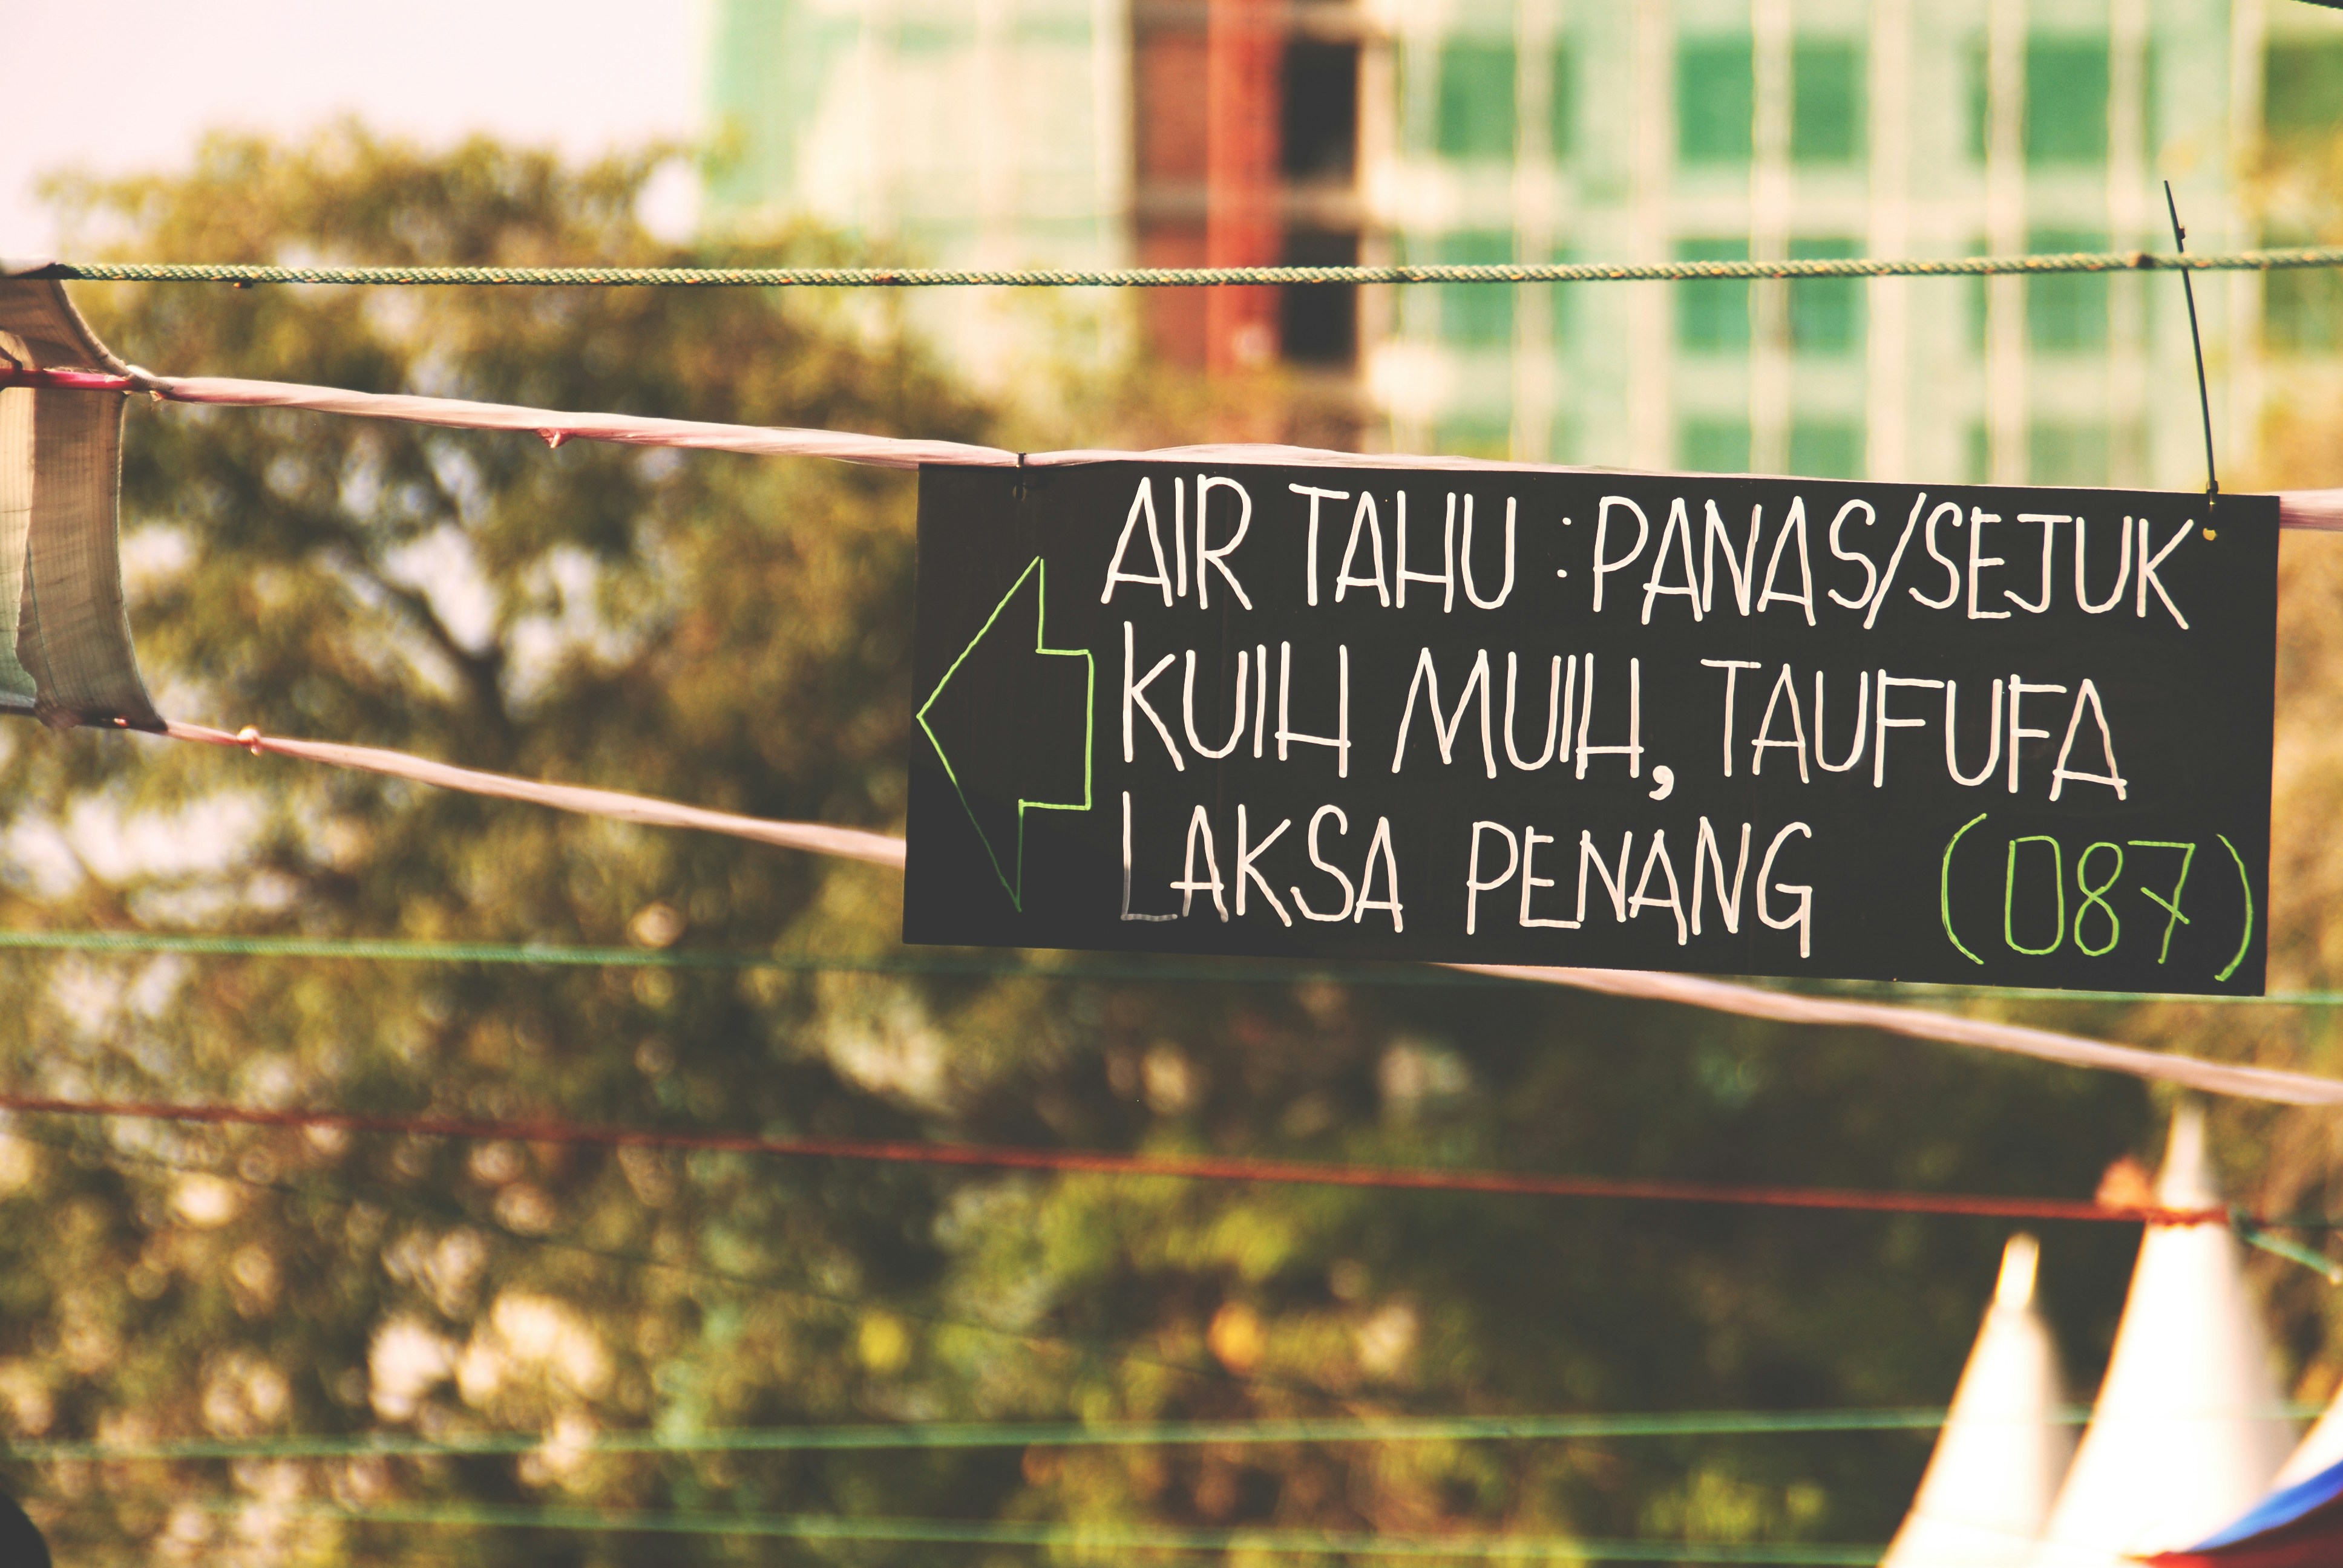 AIR TAHU : PANAS/SEJUK
KUIH MUIH, TAUFUFA
LAKSA PENANG (087)